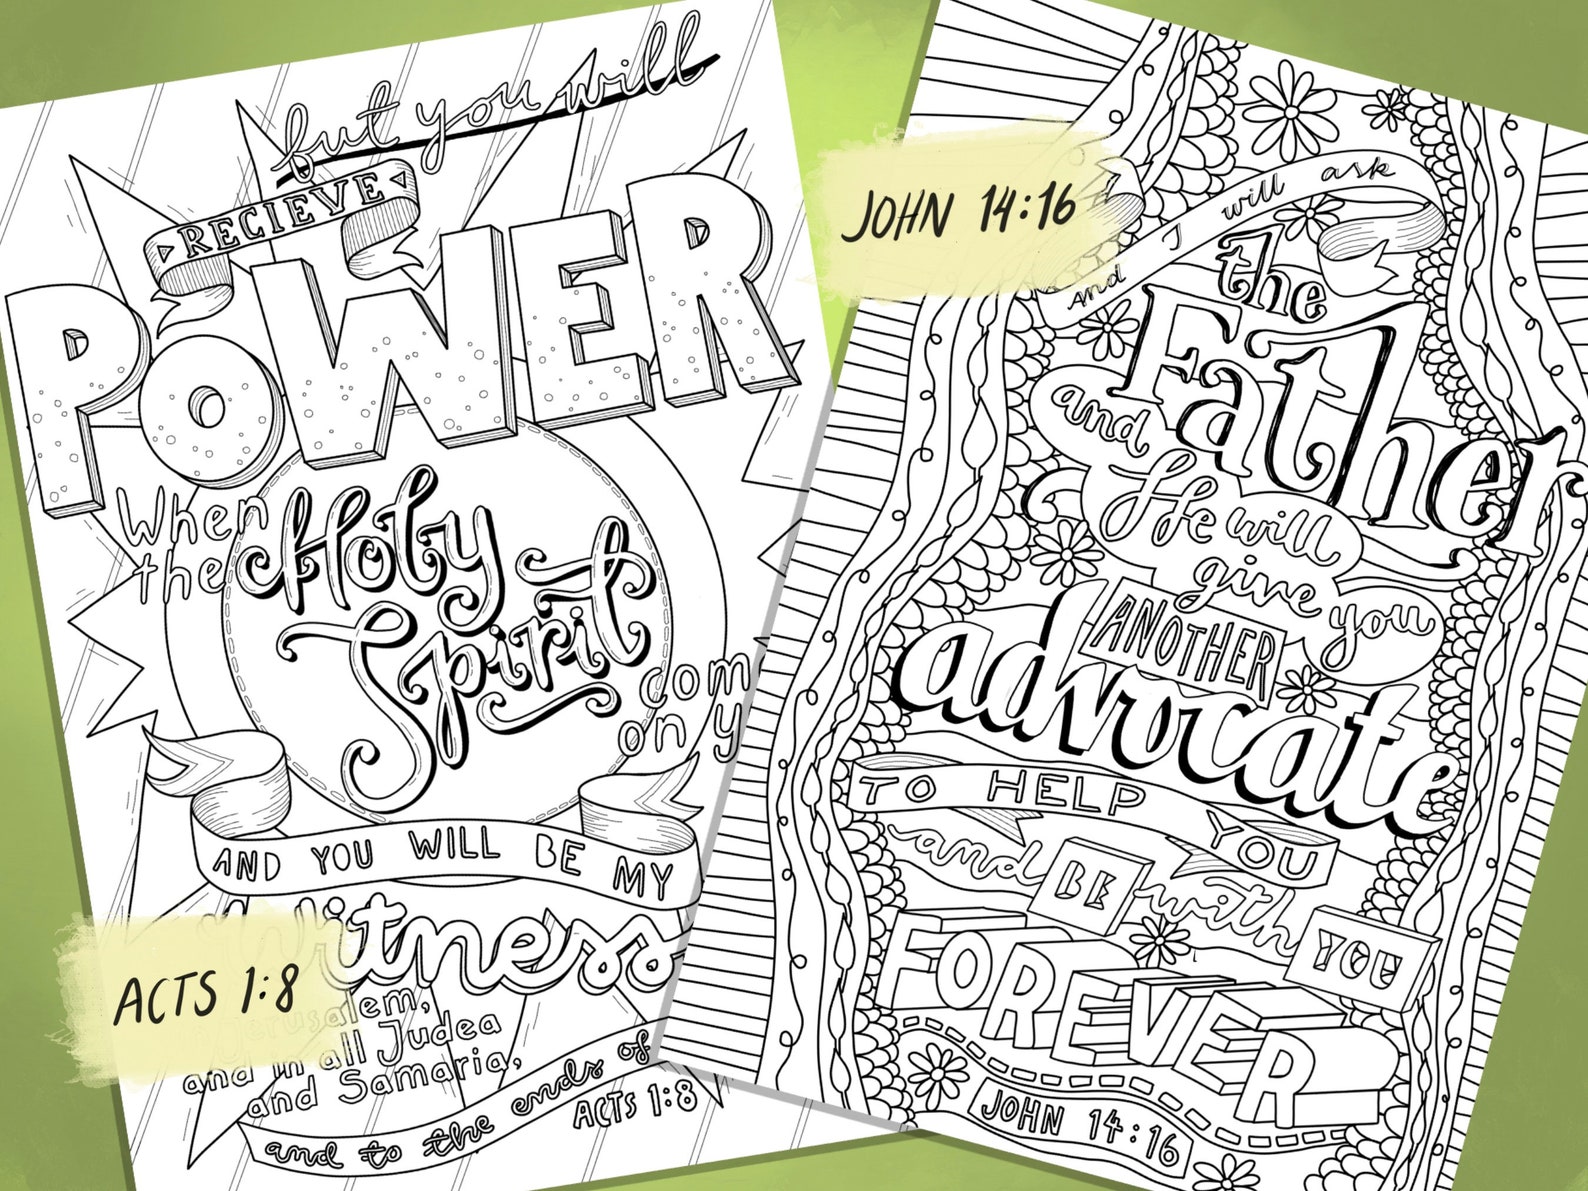 but you will
RECIEVE
POWER
When
the
Holy
Spirit
com
on y
AND YOU WILL BE MY
Witness
Jerusalem,
and in all Judea
and Samaria,
and to the ends of
ACTS 1:8
ACTS 1:8
JOHN 14:16
And I will ask
the
Father
and
He will
give you
ANOTHER
advocate
TO HELP YOU
and BE with YOU
FOREVER
JOHN 14:16